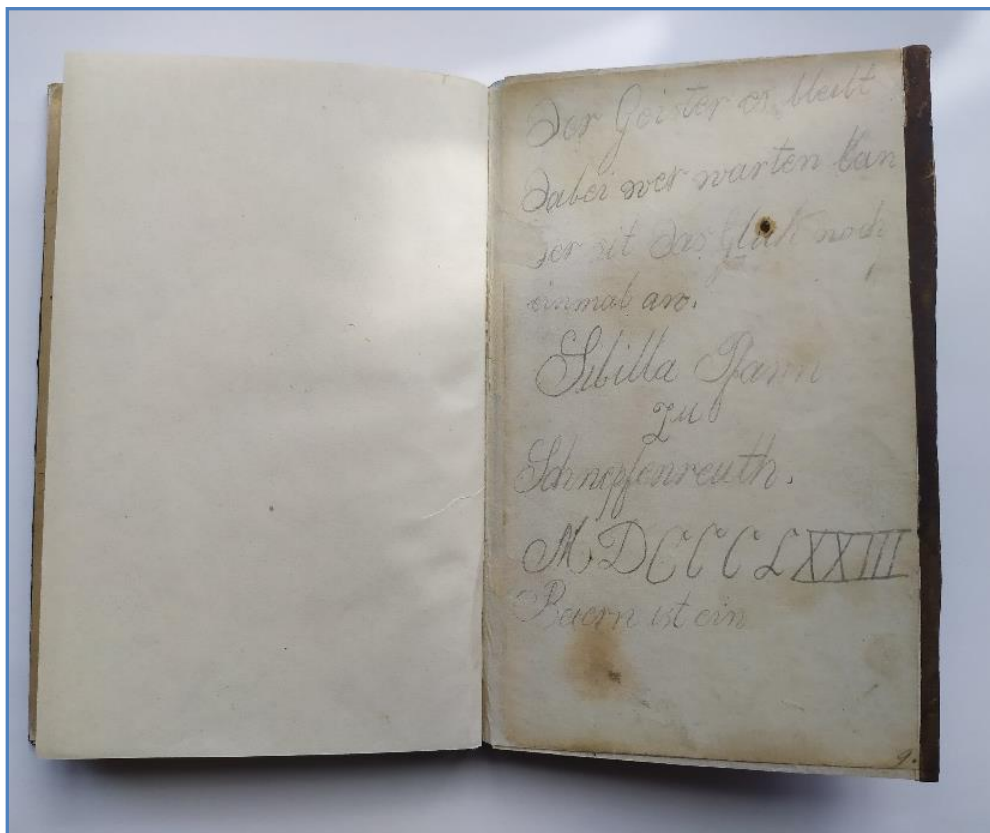 Der Geister es bleibt
dabei wer warten kan
der sit das Glük noch
einmal an.
Sibilla Pfann
zu
Schnepfenreuth.
MDCCCLXXIII
Baern ist ein
9.